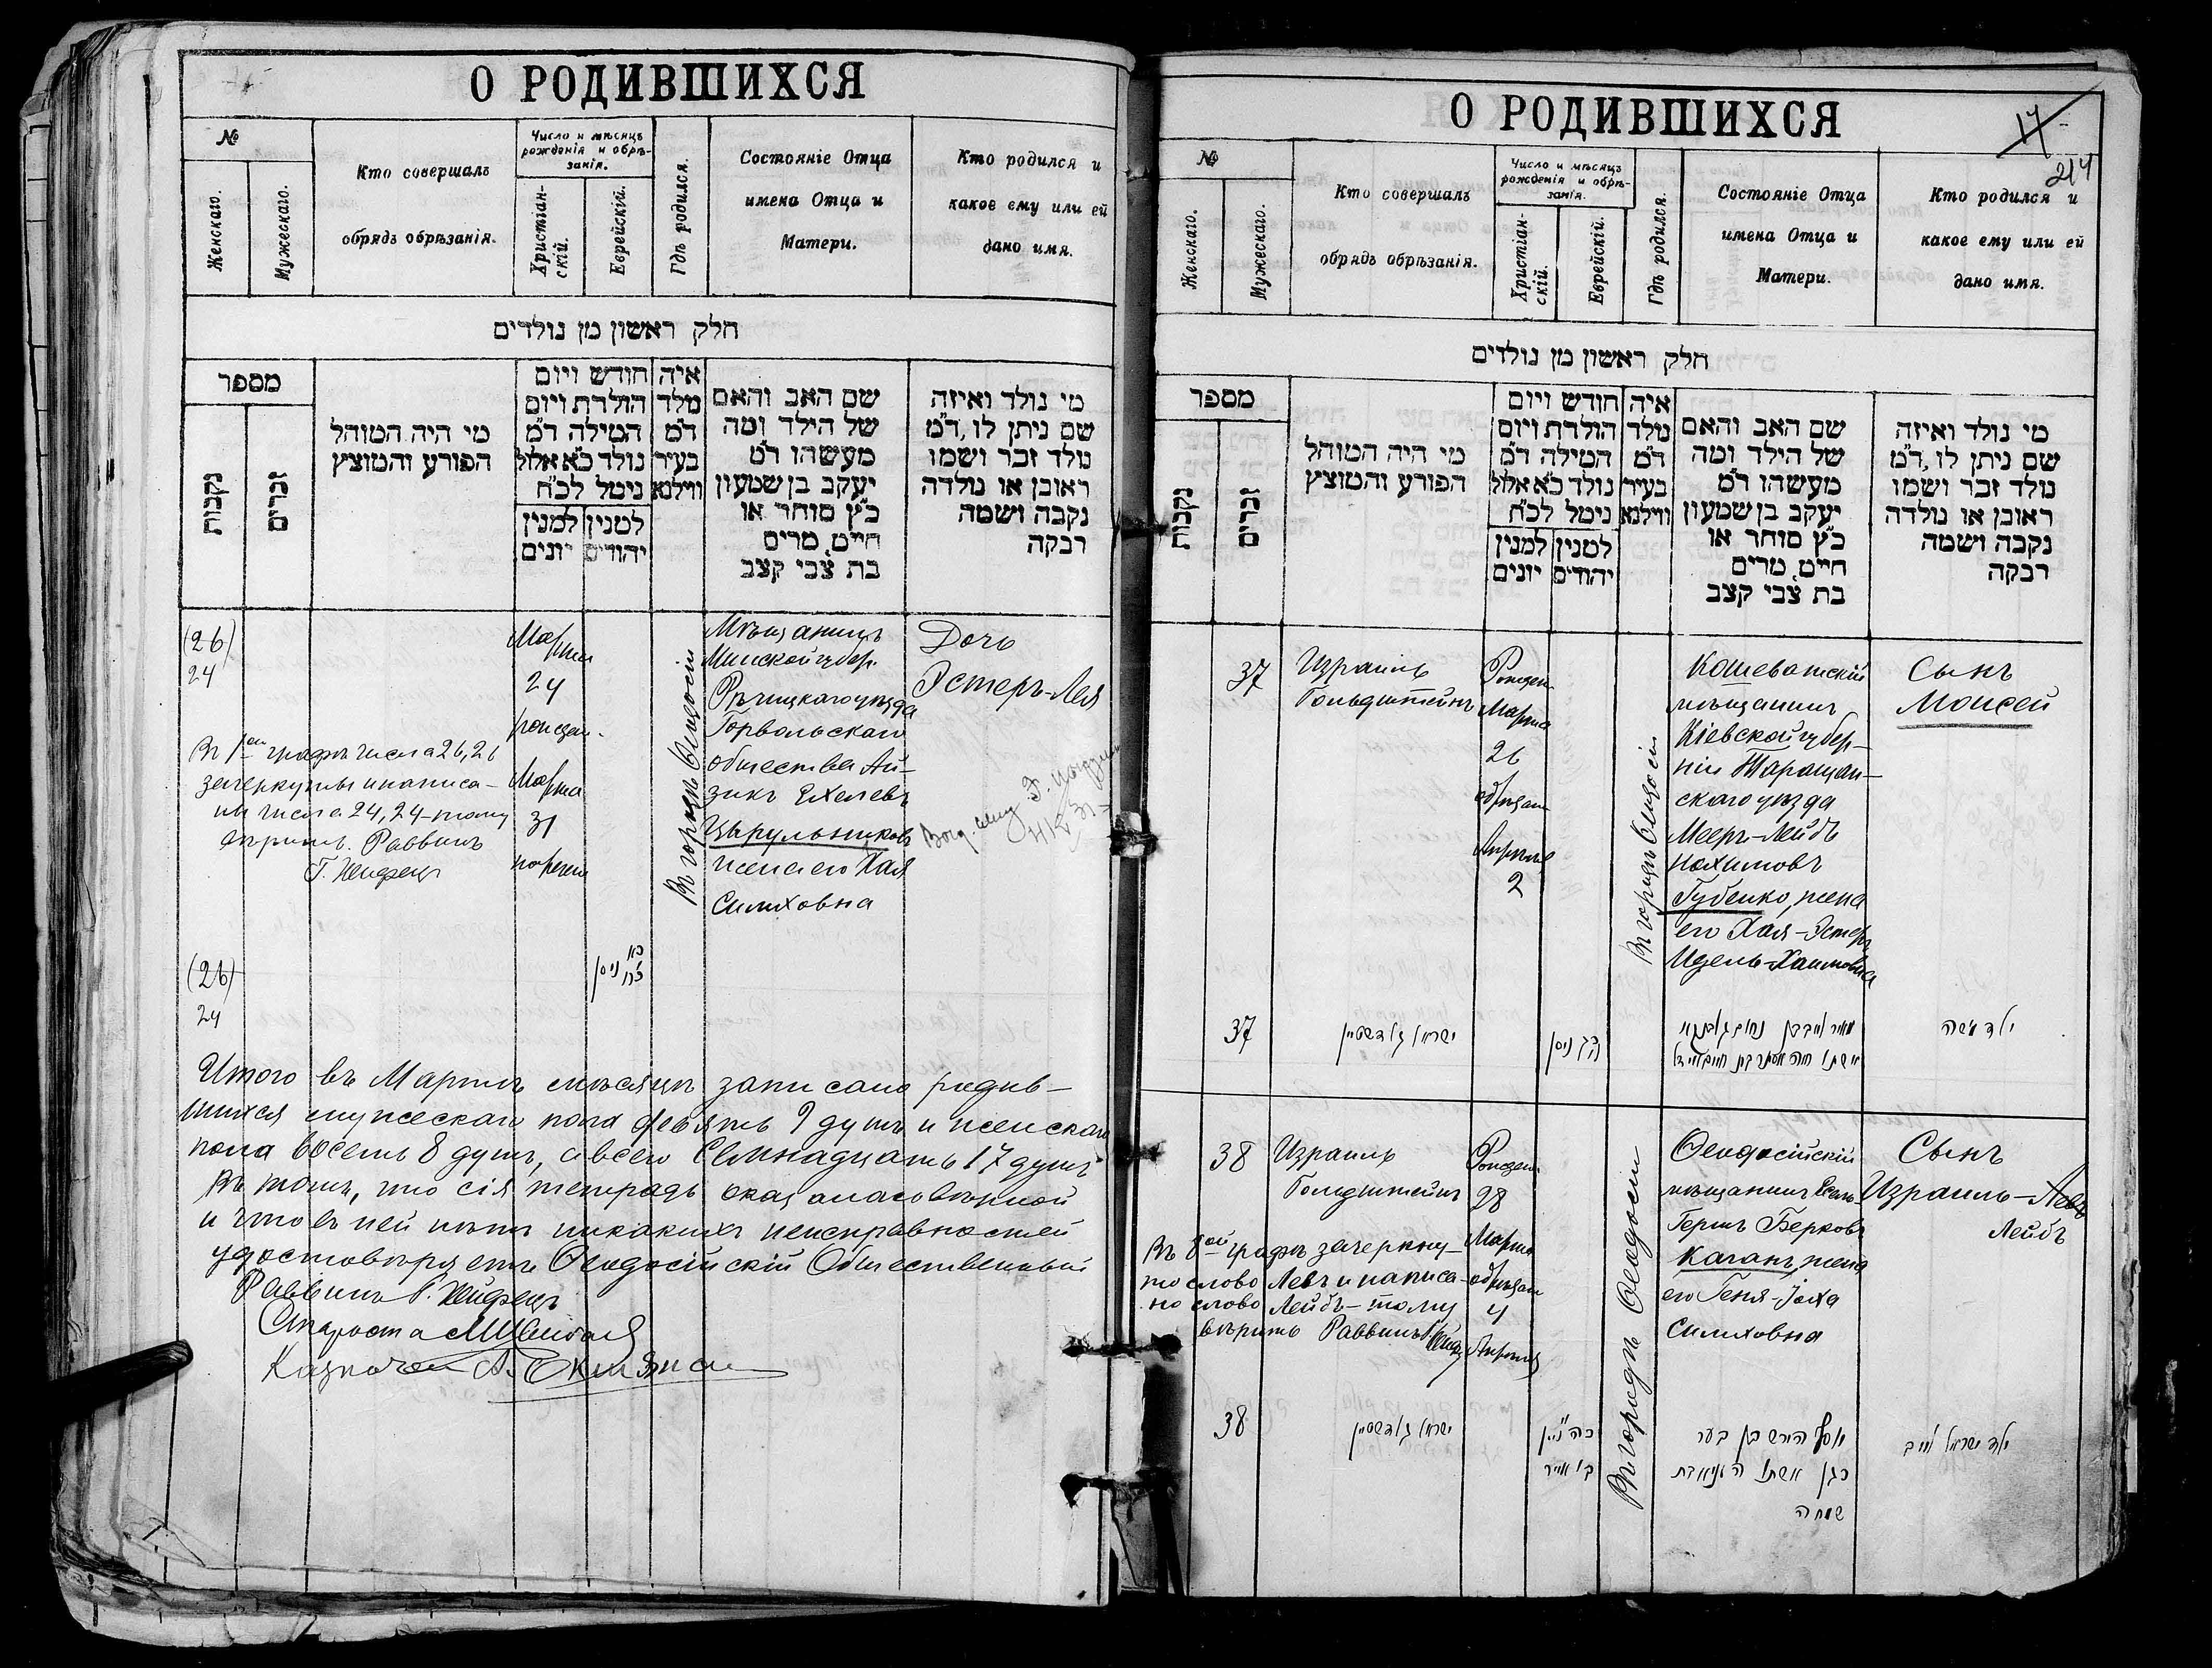 О РОДИВШИХСЯ
№
Женскаго.
Мужескаго.
Кто совершалъ
обрядъ обрѣзанія.
Число и мѣсяцъ
рожденія и обрѣ-
занія.
Христіан-
скій.
Еврейскій.
Гдѣ родился.
Состояніе Отца
имена Отца и
Матери.
Кто родился и
какое ему или ей
дано имя.
חלק ראשון מן נולדים
מספר
נקבות
זכרים
מי היה המוהל
הפורע והמוצץ
חודש ויום
הולדת ויום
המילה ד״מ
נולד כ״א אלול
ניטל לכ״ח
למנין
יונים
למנין
יהודים
איה
נולד
ד״מ
בעיר
ווילנא
שם האב והאם
של הילד ומה
מעשהו ד״מ
יעקב בן שמעון
כ״ץ סוחר או
חייט, מרים
בת צבי קצב
מי נולד ואיזה
שם ניתן לו, ד״מ
נולד זכר ושמו
ראובן או נולדה
נקבה ושמה
רבקה
(26)
24
Марта
24
рожден.
Марта
31
наречен
Въ городѣ Ѳеодосіи
Мѣщанинъ
Минской губер.
Рѣчицкаго уѣзда
Горвольскаго
общества Ай-
зикъ Ехелевъ
Цырульниковъ
жена его Хая
Симховна
Дочь
Эстеръ-Лея
Въ 1ой графѣ числа 26, 26
зачеркнуты и написа-
ны числа 24, 24 – тому
вѣрить. Раввинъ
Г. Нейфецъ
(26)
24
כא
ניסן
Итого въ Мартѣ мѣсяцѣ записано родив-
шихся мужескаго пола девять 9 душъ и женскаго
пола восемь 8 душъ, а всего Семнадцать 17 душъ
Въ томъ, что сія тетрадь оказалась вѣрной
и что въ ней нѣтъ никакихъ неисправностей
удостовѣряетъ Ѳеодосійскій Общественный
Раввинъ Г. Нейфецъ
Староста
Казначей А.
О РОДИВШИХСЯ
17
214
№
Женскаго.
Мужескаго.
Кто совершалъ
обрядъ обрѣзанія.
Число и мѣсяцъ
рожденія и обрѣ-
занія.
Христіан-
скій.
Еврейскій.
Гдѣ родился.
Состояніе Отца
имена Отца и
Матери.
Кто родился и
какое ему или ей
дано имя.
חלק ראשון מן נולדים
מספר
נקבות
זכרים
מי היה המוהל
הפורע והמוצץ
חודש ויום
הולדת ויום
המילה ד״מ
נולד כ״א אלול
ניטל לכ״ח
למנין
יונים
למנין
יהודים
איה
נולד
ד״מ
בעיר
ווילנא
שם האב והאם
של הילד ומה
מעשהו ד״מ
יעקב בן שמעון
כ״ץ סוחר או
חייט, מרים
בת צבי קצב
מי נולד ואיזה
שם ניתן לו, ד״מ
נולד זכר ושמו
ראובן או נולדה
נקבה ושמה
רבקה
37
Израиль
Гольдштейнъ
Рожден.
Марта
26
обрѣзан
Апрѣля
2
Въ городѣ Ѳеодосіи
Кошеватскій
мѣщанинъ
Кіевской губер-
ніи Таращан-
скаго уѣзда
Мееръ-Лейбъ
Нохимовъ
Губенко, жена
его Хая-Эстеръ
Идель-Хаимовна
Сынъ
Моисей
37
ישראל גאלדשטיין
כג ניסן
מאיר לייב בן נחום
אשתו חיה אסתר בת חיים אידל
ילד משה
38
Израиль
Гольдштейнъ
Рожден.
28
Марта
обрѣзан
4
Апрѣля
Въ городѣ Ѳеодосіи
Ѳеодосійскій
мѣщанинъ
Гершъ Берковъ
Каганъ, жена
его Геня-Іоха
Симховна
Сынъ
Израиль-Левъ
Лейбъ
Въ 8ой графѣ зачеркну-
то слово Левъ и написа-
но слово Лейбъ – тому
вѣрить Раввинъ Г. Нейфецъ
38
ישראל גאלדשטיין
כה ניסן
ב׳ אייר
יוסף הירש בן בער
כגן אשתו
שמחה
ילד ישראל לייב